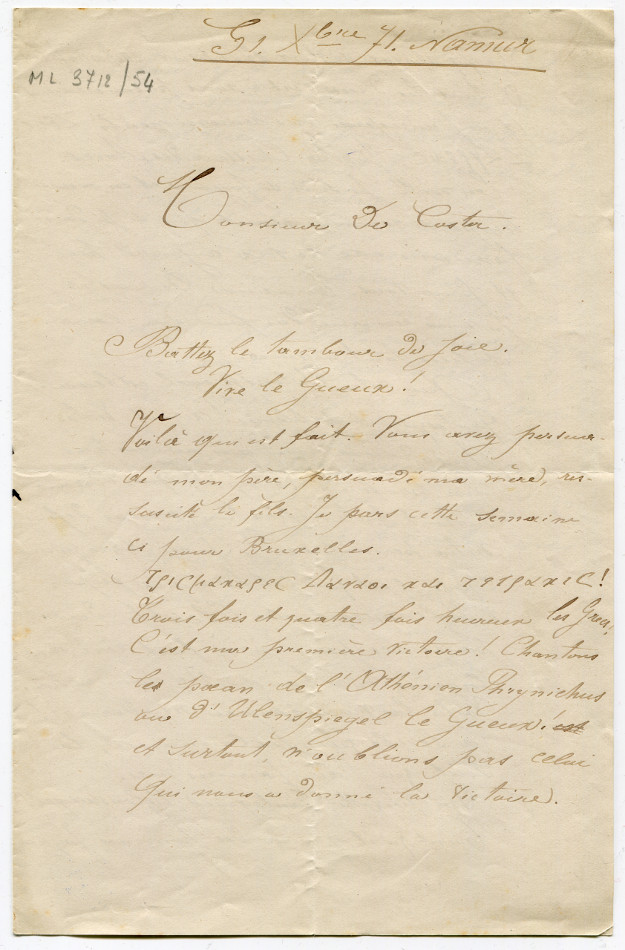 Xbre 71. Namur
ML 3712/54
Monsieur De Coster.
Battez le tambour de joie.
Vive le Gueux!
Voilà qui est fait. Vous avez persua-
dé mon père, persuadé ma mère, res-
suscité le fils. Je pars cette semaine
ci pour Bruxelles.
Τρισμακαρες Δαναοι και τετρακις!
Trois fois et quatre fois heureux les Grecs,
C'est ma première victoire! Chantons
le pæan de l'Athénien Phrynichus
ou d'Ulenspiegel le Gueux!
et surtout, n'oublions pas celui
qui nous a donné la victoire.